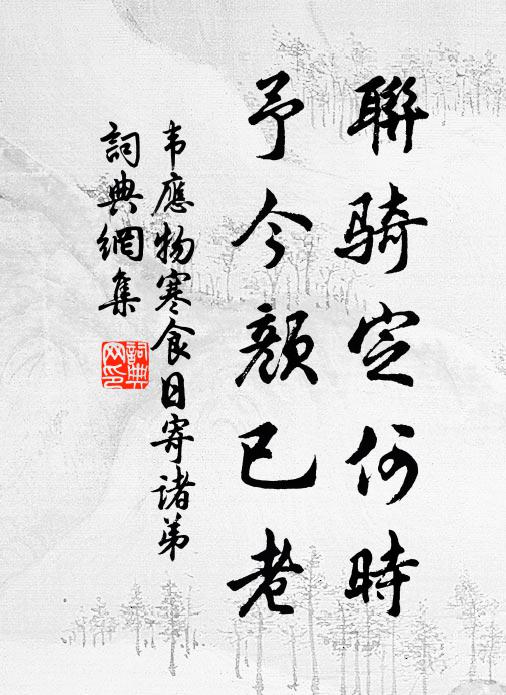 聯騎定何時
予今顏已老
韦應物寒食日寄諸弟
詞典網集
詞典
网印